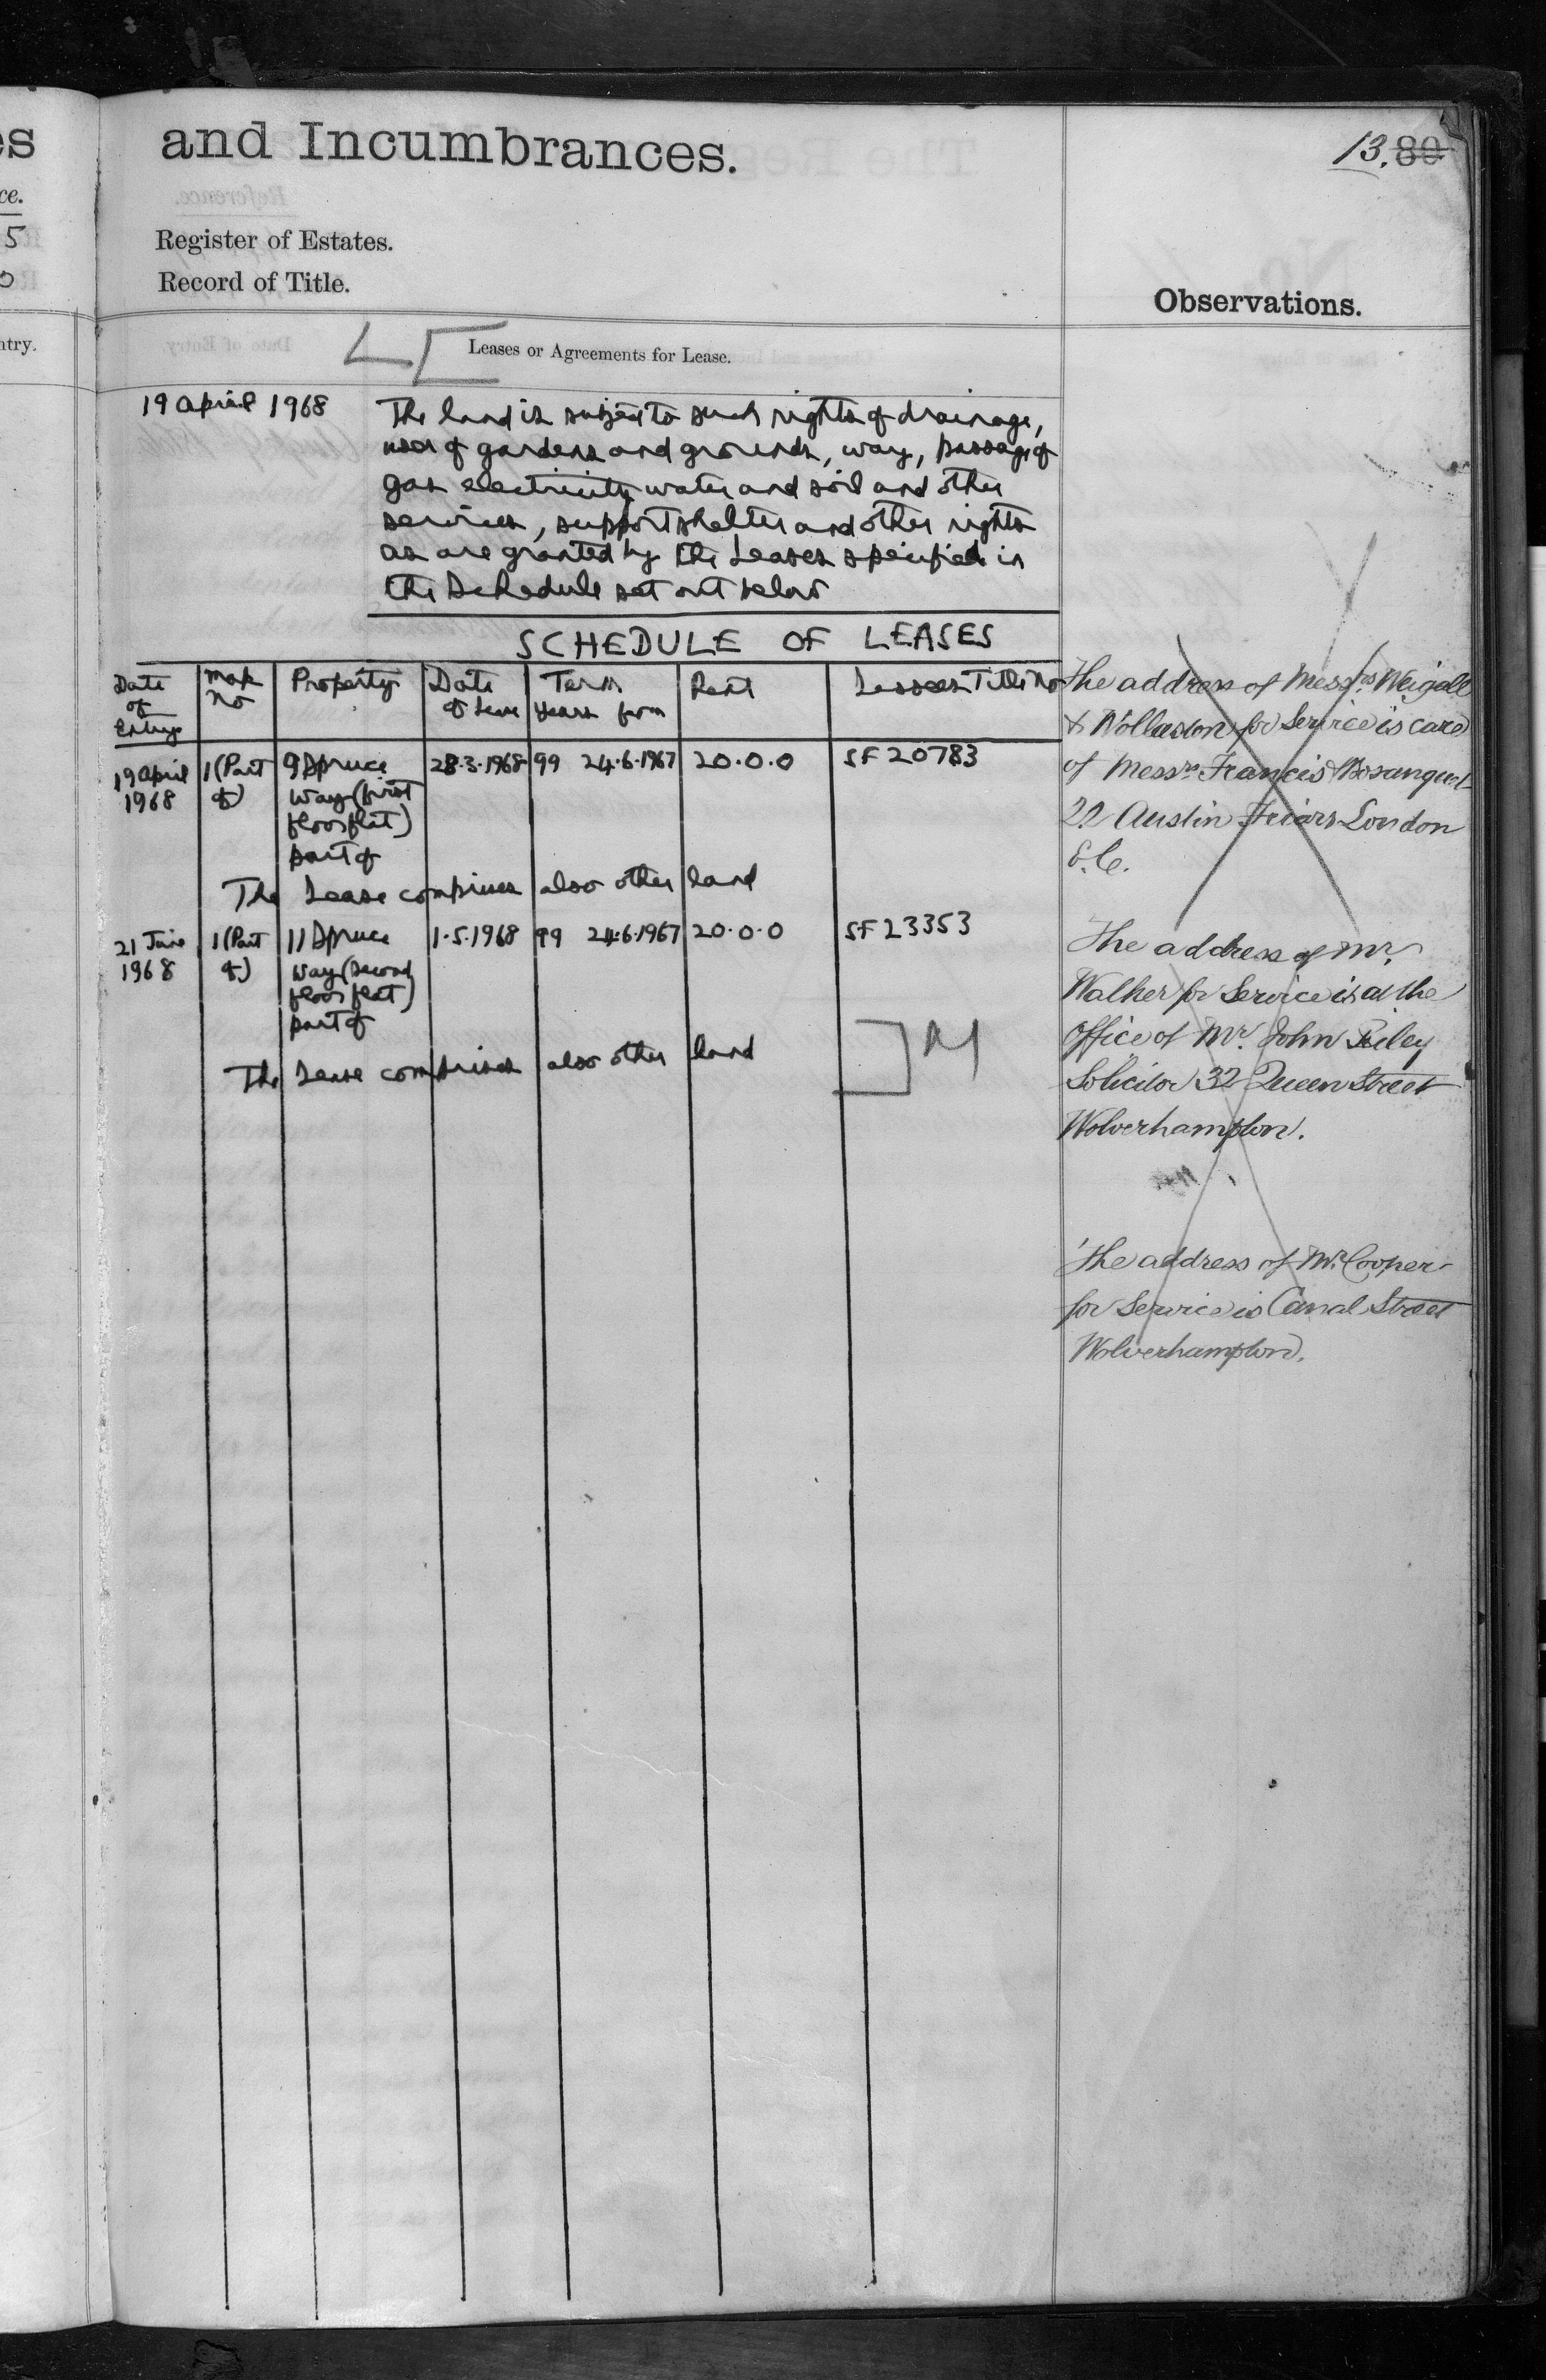 es
and Incumbrances.
13. 80
ce.
5
Register of Estates.
Record of Title.
Observations.
ntry.
Leases or Agreements for Lease.
19 April 1968
The land is subject to such rights of drainage,
user of gardens and grounds, way, passage of
gas electricity water and soil and other
services, support shelter and other rights
as are granted by the Leases specified in
the Schedule set out below
SCHEDULE OF LEASES
Date of Entry Map No Property Date of Lease Term Years from Rent Lessees Title No
19 April 1968 1 (Part of) 9 Spruce Way (first floor flat) part of 28.3.1968 99 24.6.1967 20.0.0 SF 20783
The Lease comprises also other land
21 June 1968 1 (Part of) 11 Spruce Way (second floor flat) part of 1.5.1968 99 24.6.1967 20.0.0 SF 23353
The Lease comprises also other land
The address of Messrs Weigall
& Wollaston for Service is care
of Messrs Francis & Bosanquet
22 Austin Friars London
E.C.
The address of Mr.
Walker for Service is at the
Office of Mr. John Riley
Solicitor 32 Queen Street
Wolverhampton.
The address of Mr. Cooper
for Service is Canal Street
Wolverhampton.